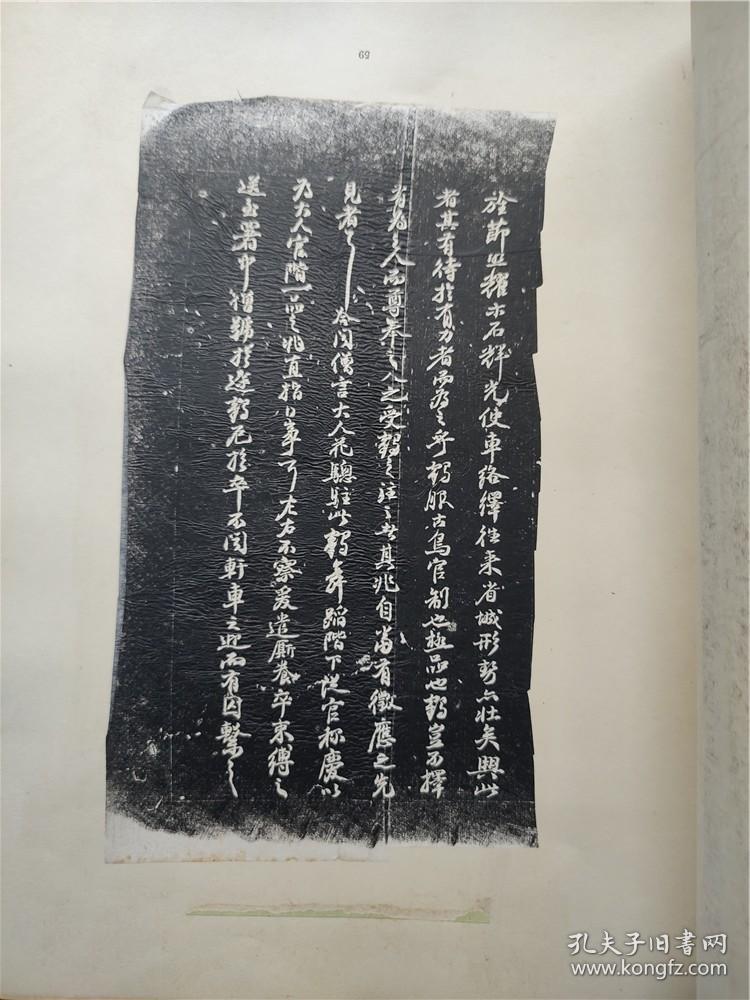 59
於節照耀木石輝光使車絡繹往来省城形勢亦壮矣與此
者其有待於有力者而為之乎鶴服古鳥官制也極品也鶴豈不擇
人而尊奉之受鶴之註者其兆自當有徵應之先
見者
今闻僧言大人花驄駐此鶴舞蹈階下從官称慶以
為大人官階一品之兆直指日事耳左右不察爰遣厮養卒束縛之
送至署中禮鶴於遊鶴厄於卒不図軒車之迎而有囚繫之
孔夫子旧書网
www.kongfz.com